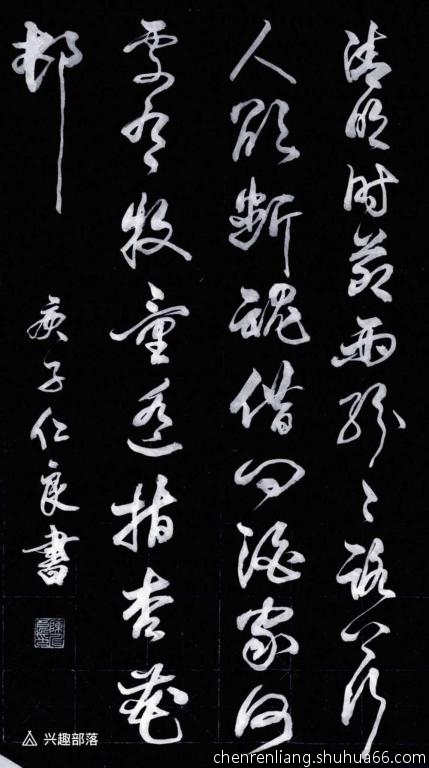 清明时节雨纷〻路上行
人欲断魂借问酒家何
处有牧童遥指杏花
村
庚子仁良書
兴趣部落
chenrenliang.shuhua66.com